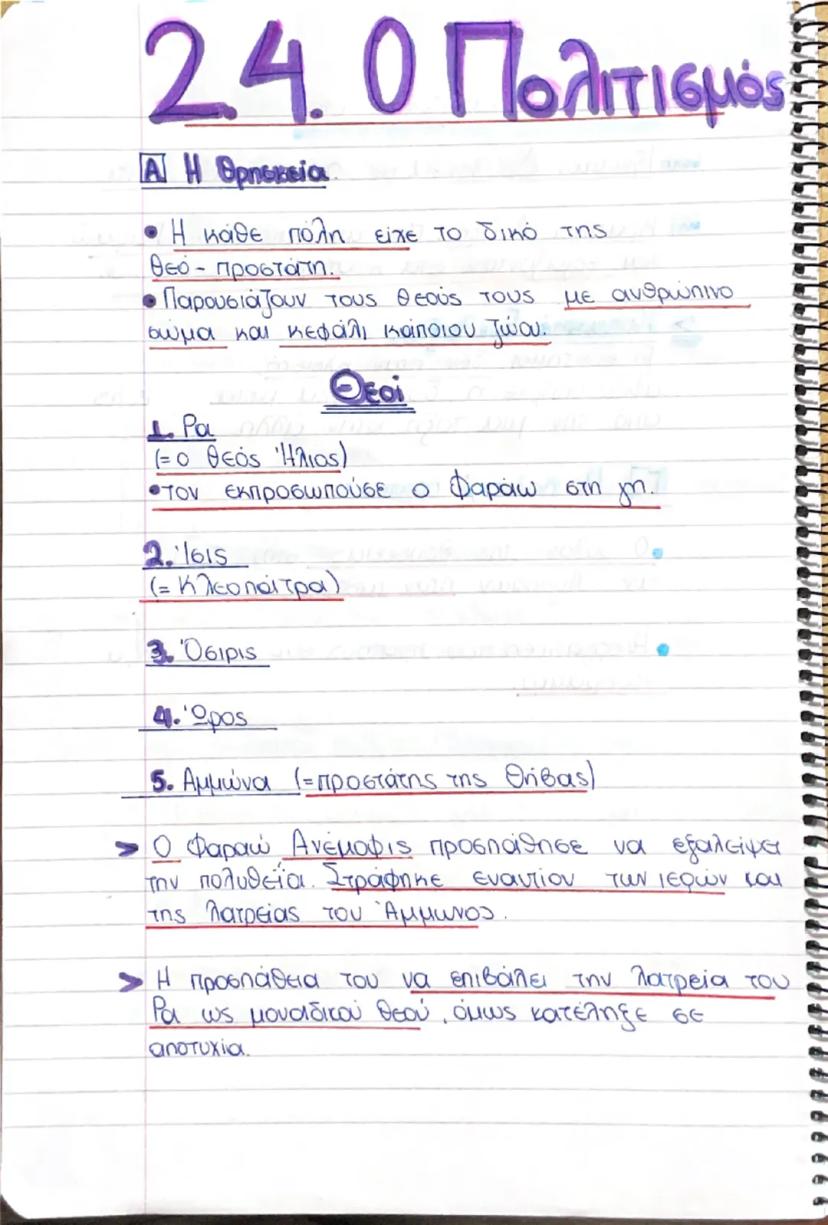 2.4. Ο Πολιτισμός
Α Η Θρησκεία
• Η κάθε πόλη είχε το δικό της
θεό-προστάτη.
• Παρουσιάζουν τους θεούς τους με ανθρώπινο
σώμα και κεφάλι κάποιου ζώου.
Θεοί
1. Ρα
(= ο θεός Ήλιος)
• τον εκπροσωπούσε ο Φαραώ στη γη.
2. Ίσις
(= Κλεοπάτρα)
3. Όσιρις
4. Ώρος
5. Αμμώνα (=προστάτης της Θήβας)
> Ο Φαραώ Ανέμοφις προσπάθησε να εξαλείψει
την πολυθεΐα. Στράφηκε εναντίον των ιερών και
της λατρείας του Άμμωνος.
> Η προσπάθεια του να επιβάλει την λατρεία του
Ρα ως μοναδικού θεού, όμως κατέληξε σε
αποτυχία.